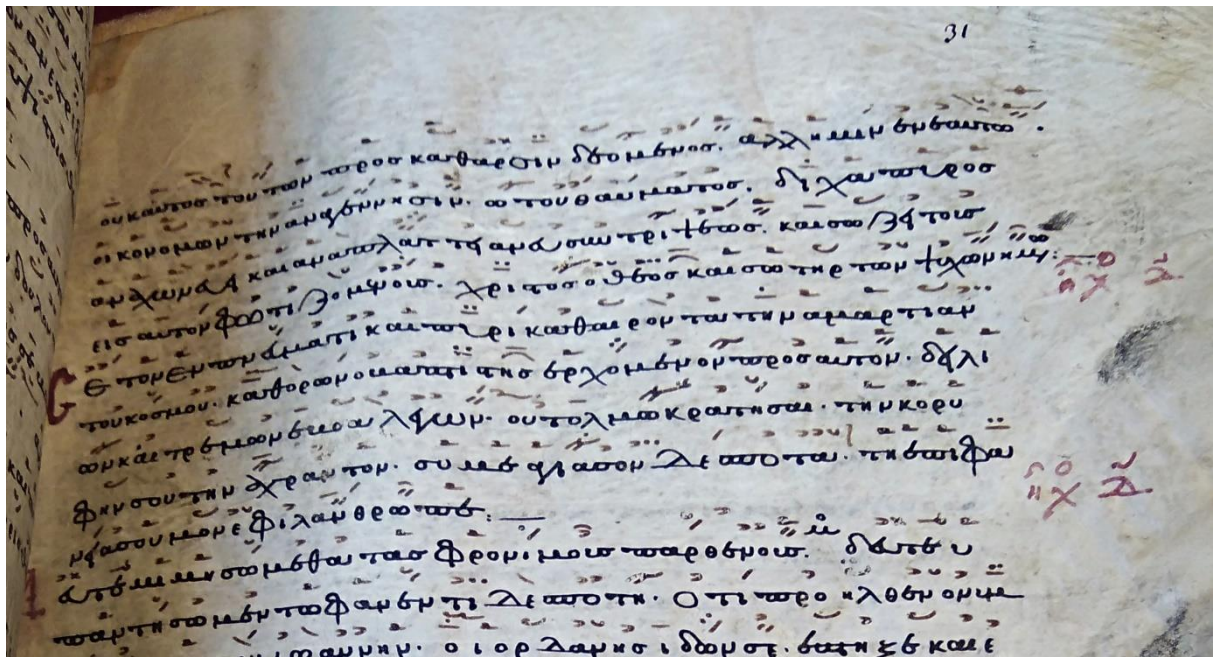 31
ουκ αυτος τουτων προς καθαρσιν δεομενος. αλλ ημιν εν εαυτω.
οικονομων την αναγεννησιν. ω του θαυματος. διχα πυρος
αναχωνευει και αναπλαττει ανευ συντριψεως. και σωζει τους
εις αυτον φωτιζομενους. χριστος ο θεος και σωτηρ των ψυχων ημων:
Σε τον εν πνευματι και πυρι καθαιροντα την αμαρτιαν
του κοσμου. καθορων ο βαπτιστης ερχομενον προς αυτον. δειλι
ων και τρεμων εβοα λεγων. ου τολμω κρατησαι. την κορυ
φην σου την αχραντον. συ με αγιασον Δεσποτα. τη επιφα
νεια σου μονε φιλανθρωπε:
Δευτε μιμησωμεθα τας φρονιμους παρθενους. δευτε υ
παντησωμεν τω φανεντι Δεσποτη. Οτι προηλθεν ο νυμ
ιωαννην. ο ιορδανης ιδων σε. επτηξε και ε